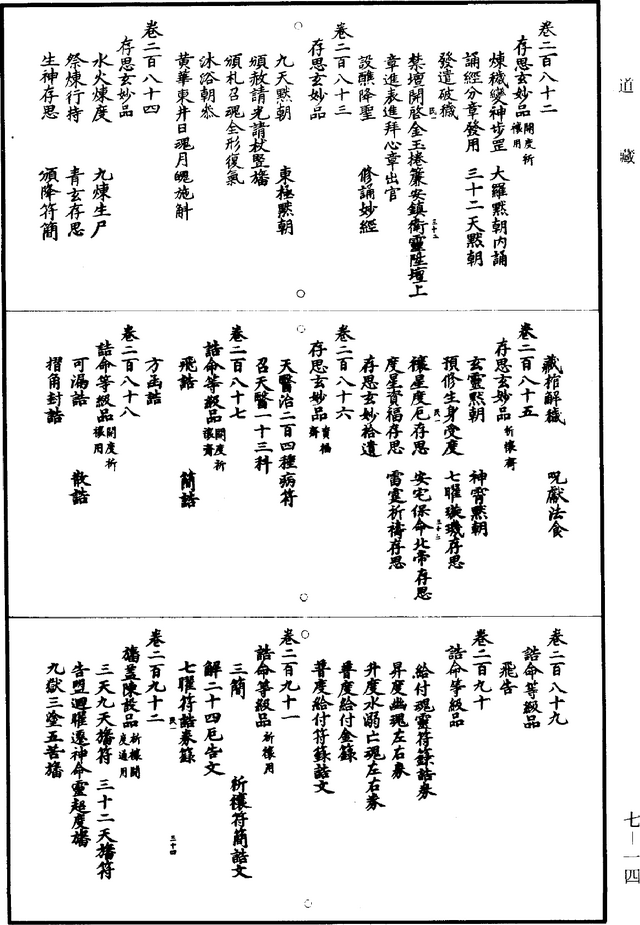 道藏
卷二百八十二
存思玄妙品 開度祈禳用
煉穢變神步罡 大羅默朝內誦
誦經分章發用 三十二天默朝
發遣破穢
禁壇開啟金玉捲簾安鎮衛靈陞壇上
章進表進拜心章出官
設醮降聖 修誦妙經
卷二百八十三
存思玄妙品
九天默朝 東極默朝
頒赦請光請杖豎旛
頒札召魂全形復氣
沐浴朝叅
黃華東井日魂月魄施斛
卷二百八十四
存思玄妙品
水火煉度 九煉生尸
祭煉行持 青玄存思
生神存思 頒降符簡
藏棺解穢 呪獻法食
卷二百八十五
存思玄妙品 祈禳齋
玄靈默朝 神霄默朝
預修生身受度 七曜璇璣存思
禳星度厄存思 安宅保命北帝存思
度星資福存思 雷霆祈禱存思
存思玄妙拾遺
卷二百八十六
存思玄妙品 資福齋
天醫治二百四種病符
召天醫一十三科
卷二百八十七
誥命等級品 開度祈禳齋
飛誥 簡誥
方函誥
卷二百八十八
誥命等級品 開度祈禳用
可漏誥 散誥
摺角封誥
卷二百八十九
誥命等級品
飛告
卷二百九十
誥命等級品
給付魂靈符籙誥券
昇度幽魂左右券
升度水溺亡魂左右券
普度給付金籙
普度給付符籙誥文
卷二百九十一
誥命等級品 祈禳用
三簡 祈禳符簡誥文
解二十四厄告文
七曜符誥券籙
卷二百九十二
旛蓋陳設品 祈禳開度通用
三天九天旛符 三十二天旛符
告盟迴曜遷神命靈超度旛
九獄三塗五苦旛
民一
三十二
民一
三十三
民一
三十四
七—一四